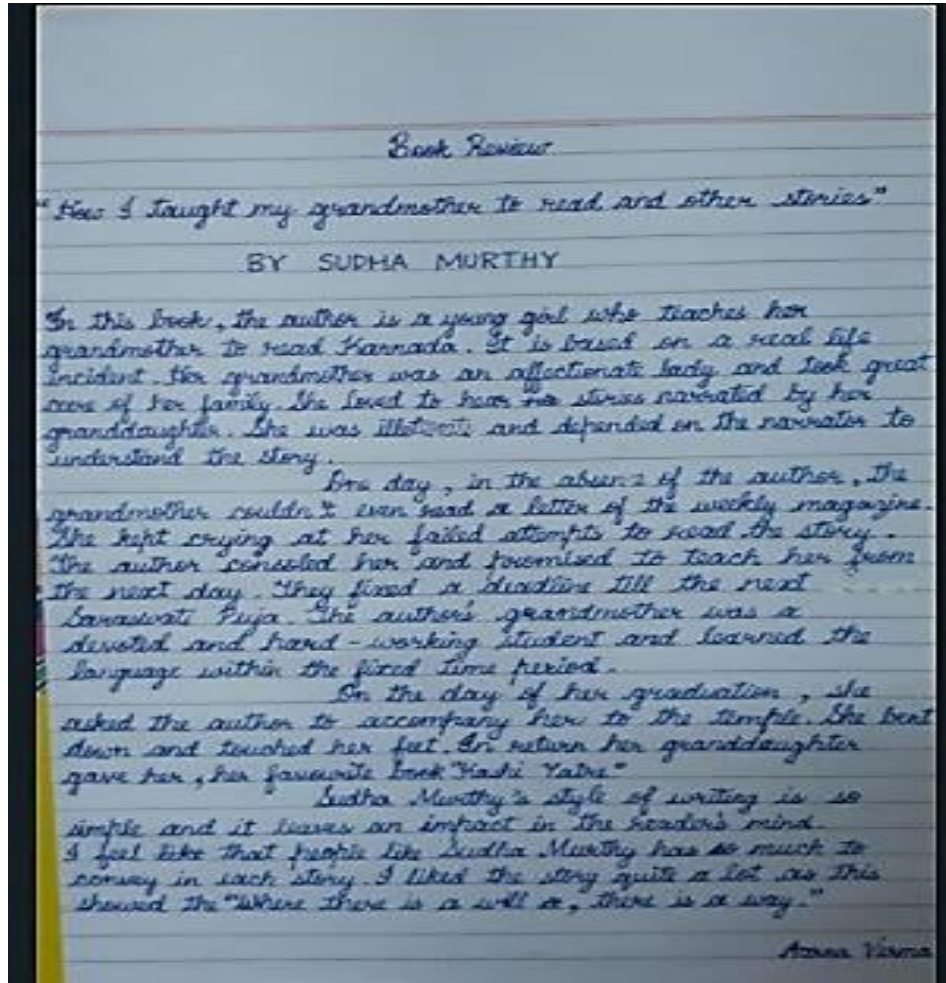 Book Review
"How I Taught my grandmother to read and other stories"
BY SUDHA MURTHY
In this book, the author is a young girl who teaches her
grandmother to read Kannada. It is based on a real life
incident. Her grandmother was an affectionate lady and took great
care of her family. She loved to hear stories narrated by her
granddaughter. She was and depended on the narrator to
understand the story.
One day, in the of the author, the
grandmother couldn't even read a letter of the weekly magazine.
She kept crying at her failed attempts to read the story.
The author consoled her and promised to teach her from
the next day. They fixed a deadline till the next
Saraswati Puja. The author's grandmother was a
devoted and hard-working student and learned the
language within the fixed time period.
On the day of her graduation, she
asked the author to accompany her to the temple. She bent
down and touched her feet. In return her granddaughter
gave her, her favourite book "Kashi Yatre"
Sudha Murthy's style of writing is so
simple and it leaves an impact in the reader's mind.
I feel like that people like Sudha Murthy has so much to
convey in each story. I liked the story quite a lot as this
showed the "Where there is a will, there is a way."
Verma